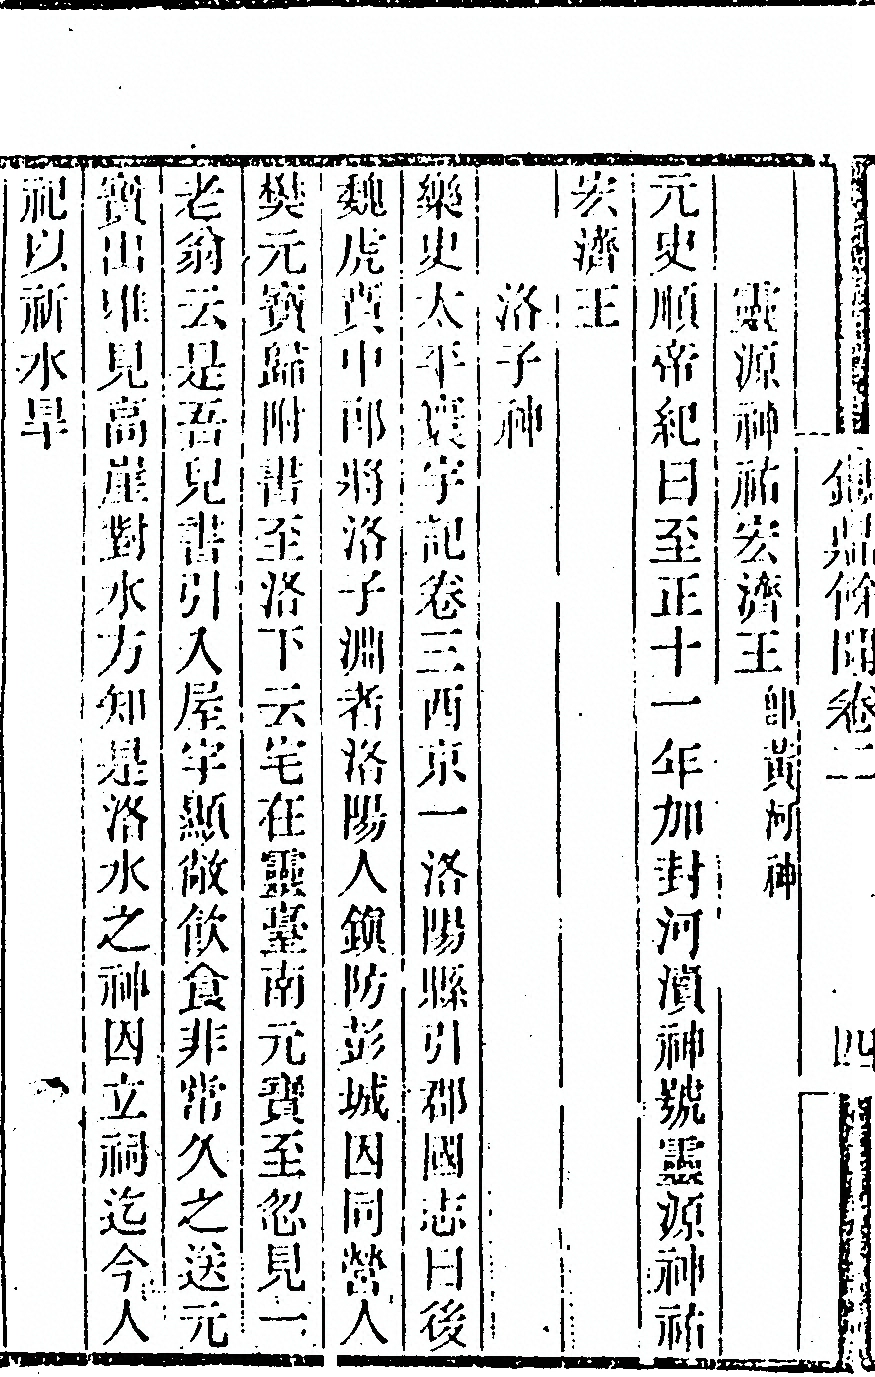 鑄鼎餘聞卷二 四
靈源神祐宏濟王 卽黃河神
元史順帝紀曰至正十一年加封河瀆神號靈源神祐
宏濟王
洛子神
樂史太平寰宇記卷三西京一洛陽縣引郡國志曰後
魏虎賁中郎將洛子淵者洛陽人鎮防彭城因同營人
樊元寶歸附書至洛下云宅在靈臺南元寶至忽見一
老翁云是吾兒書引入屋宇顯敞飲食非常久之送元
寶出唯見高崖對水方知是洛水之神因立祠迄今人
祀以祈水旱